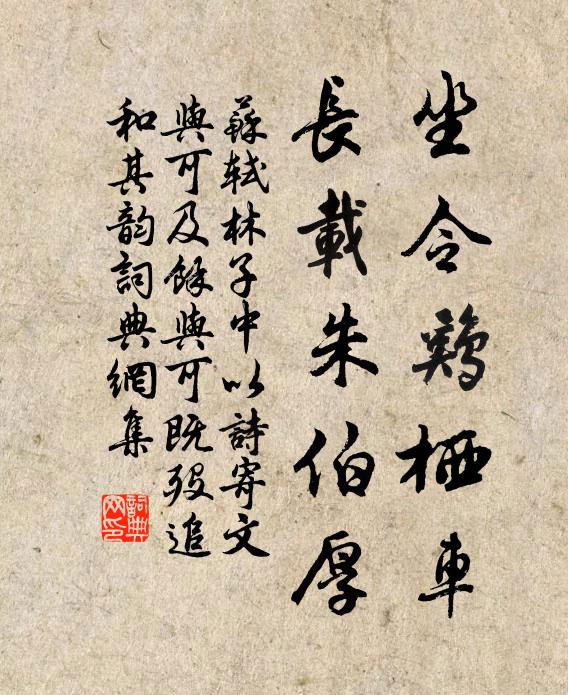 坐令鷄栖車
長載朱伯厚
蘇軾林子中以詩寄文
與可及餘與可既歿追
和其韵詞典網集
詞典
网印